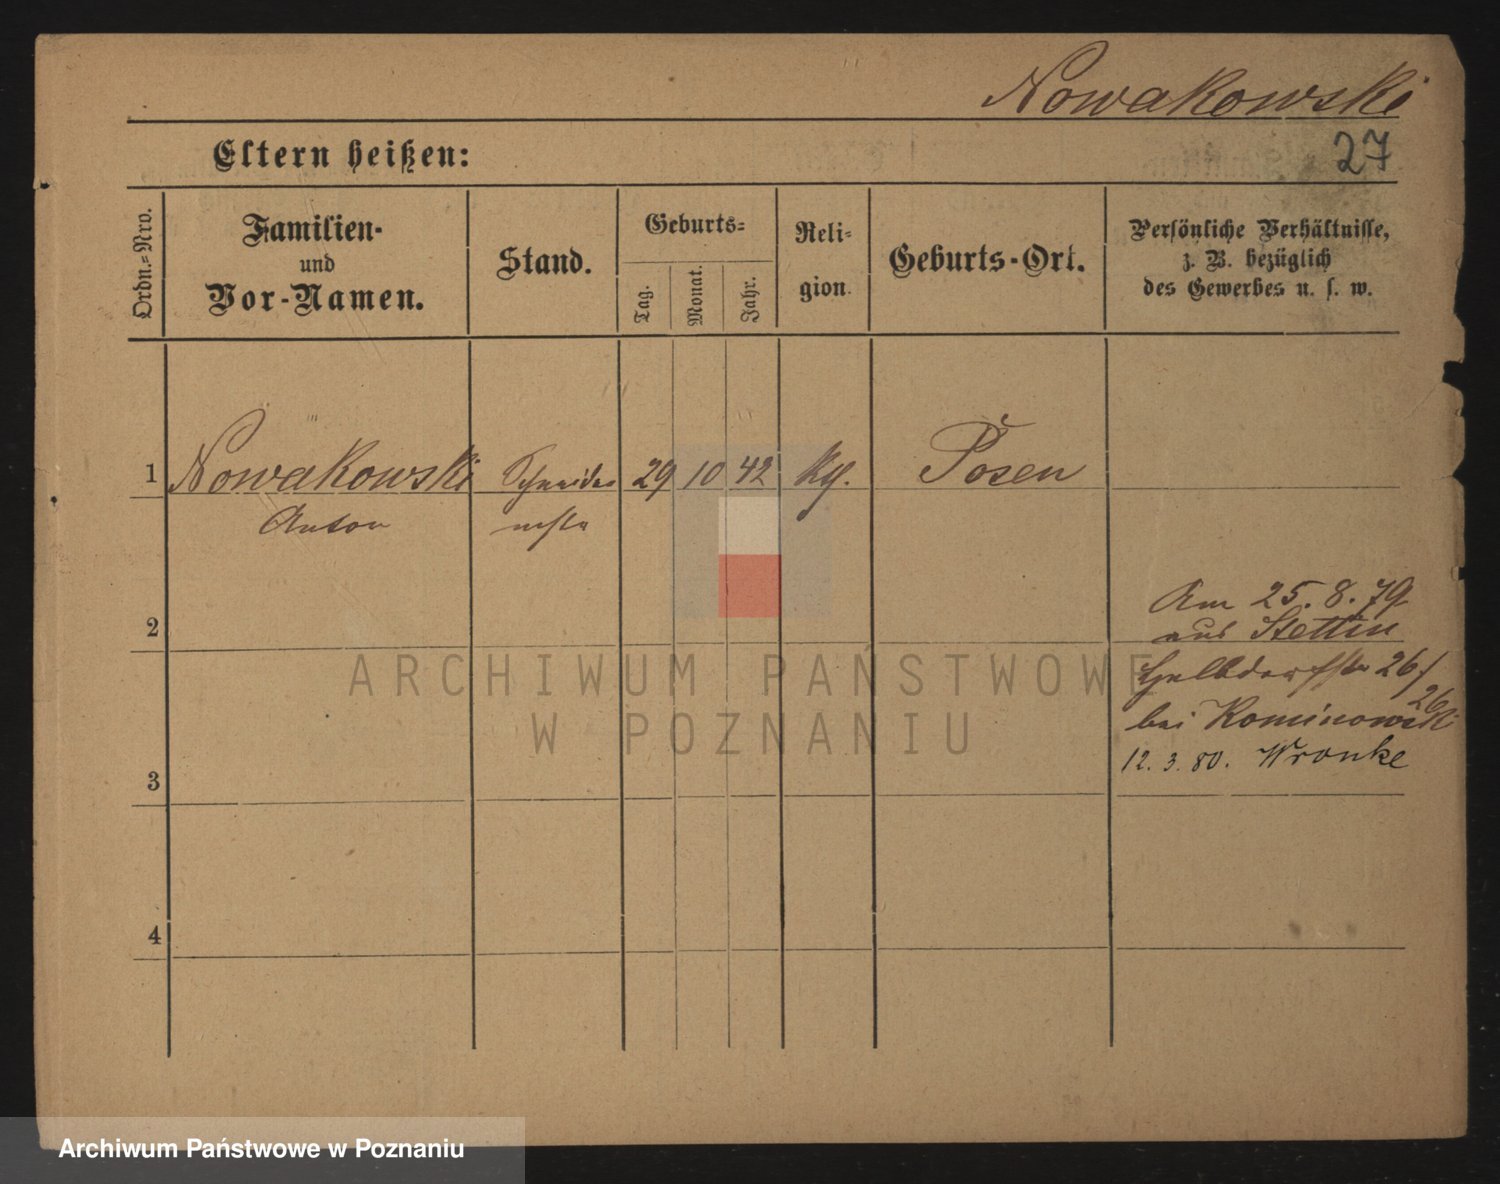 Nowakowski
Eltern heißen:
27
Ordn.-Nro.
Familien-
und
Vor-Namen.
Stand.
Geburts-
Tag.
Monat.
Jahr.
Reli-
gion.
Geburts-Ort.
Persönliche Verhältnisse,
z. B. bezüglich
des Gewerbes u. s. w.
1
Nowakowski
Schneider
29
10
42
Posen
Anton
Am 25. 8. 79
2
aus Stettin
26/
26
bei Kominowski
12. 3. 80. Wronke
3
4
ARCHIWUM PAŃSTWOWE
W POZNANIU
Archiwum Państwowe w Poznaniu